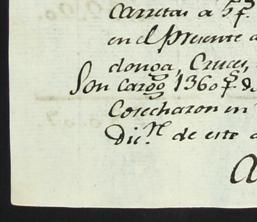 Carretas a 5 p.
en el presente a
donga, Cruces,
Son Cargo 1360 p.s d
Cosecharon en
Dic.re de este a